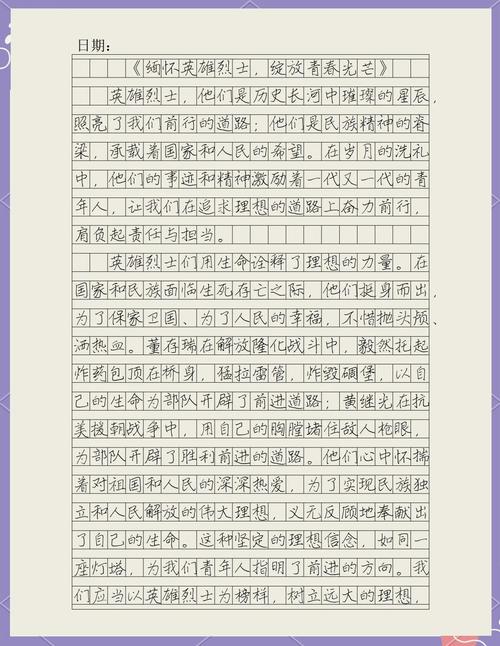 日期：
《缅怀英雄烈士，绽放青春光芒》
英雄烈士，他们是历史长河中璀璨的星辰，
照亮了我们前行的道路；他们是民族精神的脊
梁，承载着国家和人民的希望。在岁月的洗礼
中，他们的事迹和精神激励着一代又一代的青
年人，让我们在追求理想的道路上奋力前行，
肩负起责任与担当。
英雄烈士们用生命诠释了理想的力量。在
国家和民族面临生死存亡之际，他们挺身而出，
为了保家卫国、为了人民的幸福，不惜抛头颅、
洒热血。董存瑞在解放隆化战斗中，毅然托起
炸药包顶在桥身，猛拉雷管，炸毁碉堡，以自
己的生命为部队开辟了前进道路；黄继光在抗
美援朝战争中，用自己的胸膛堵住敌人枪眼，
为部队开辟了胜利前进的道路。他们心中怀揣
着对祖国和人民的深深热爱，为了实现民族独
立和人民解放的伟大理想，义无反顾地奉献出
了自己的生命。这种坚定的理想信念，如同一
座灯塔，为我们青年人指明了前进的方向。我
们应当以英雄烈士为榜样，树立远大的理想，